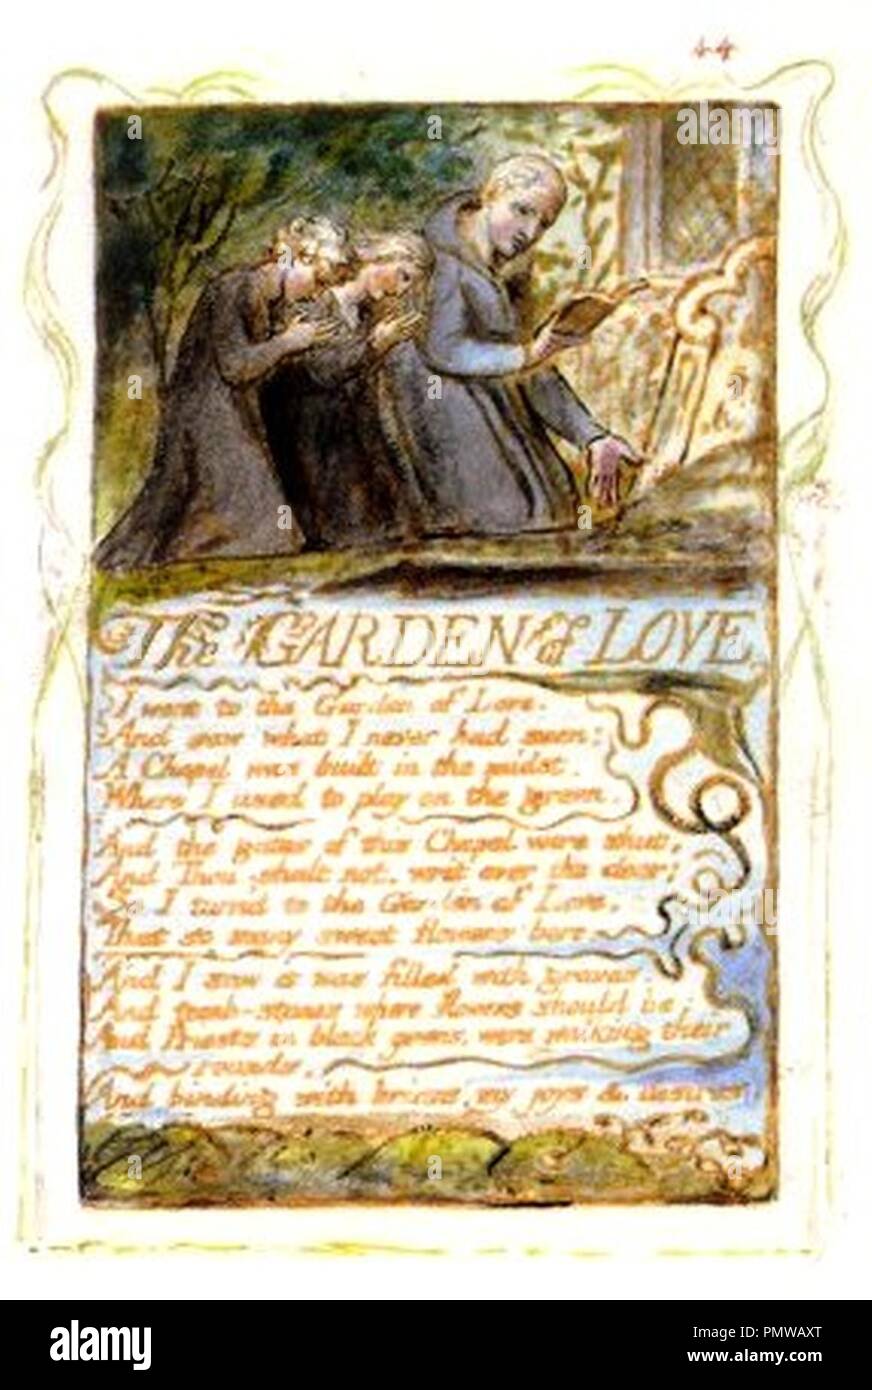 44
The GARDEN of LOVE
I went to the Garden of Love.
And saw what I never had seen:
A Chapel was built in the midst,
Where I used to play on the green.
And the gates of this Chapel were shut,
And Thou shalt not. writ over the door;
So I turnd to the Garden of Love,
That so many sweet flowers bore.
And I saw it was filled with graves,
And tomb-stones where flowers should be:
And Priests in black gowns, were walking their
rounds,
And binding with briars, my joys & desires.
a
alamy
a
alamy
a
alamy
alamy
Image ID: PMWAXT
www.alamy.com